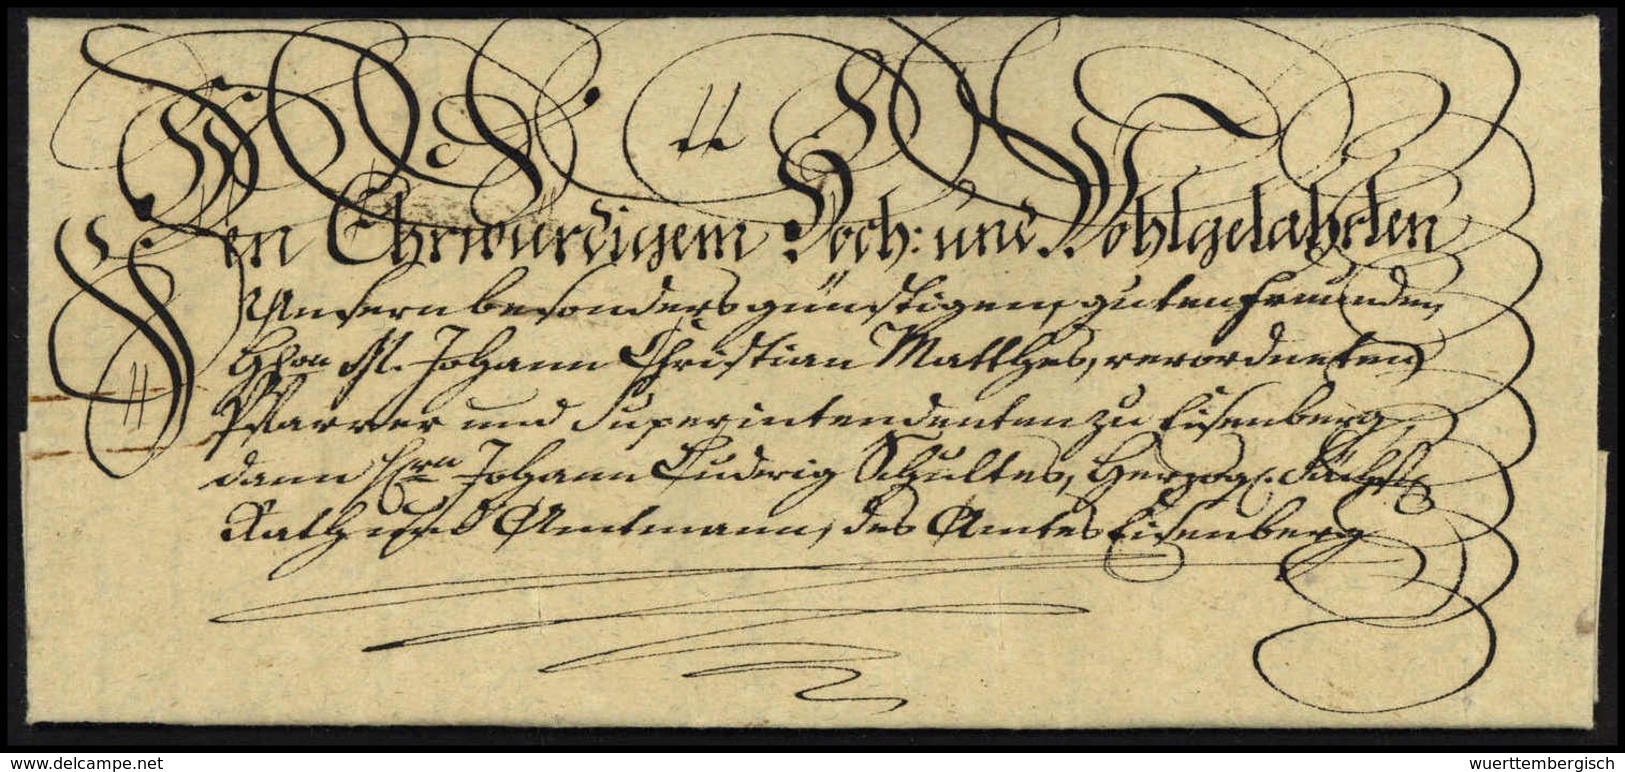 Den Ehrwürdigem Hoch: und Wohlgelahrten
Unsern besonders günstigen, guten Freunden,
Hrn M. Johann Christian Matthes, verordneten
Pfarrer und Superintendenten zu Eisenberg,
dann Hrn Johann Ludwig Schultes, Herzogl. Sächs.
Rath und Amtmann, des Amtes Eisenberg
www.delcampe.net
wuerttembergisch